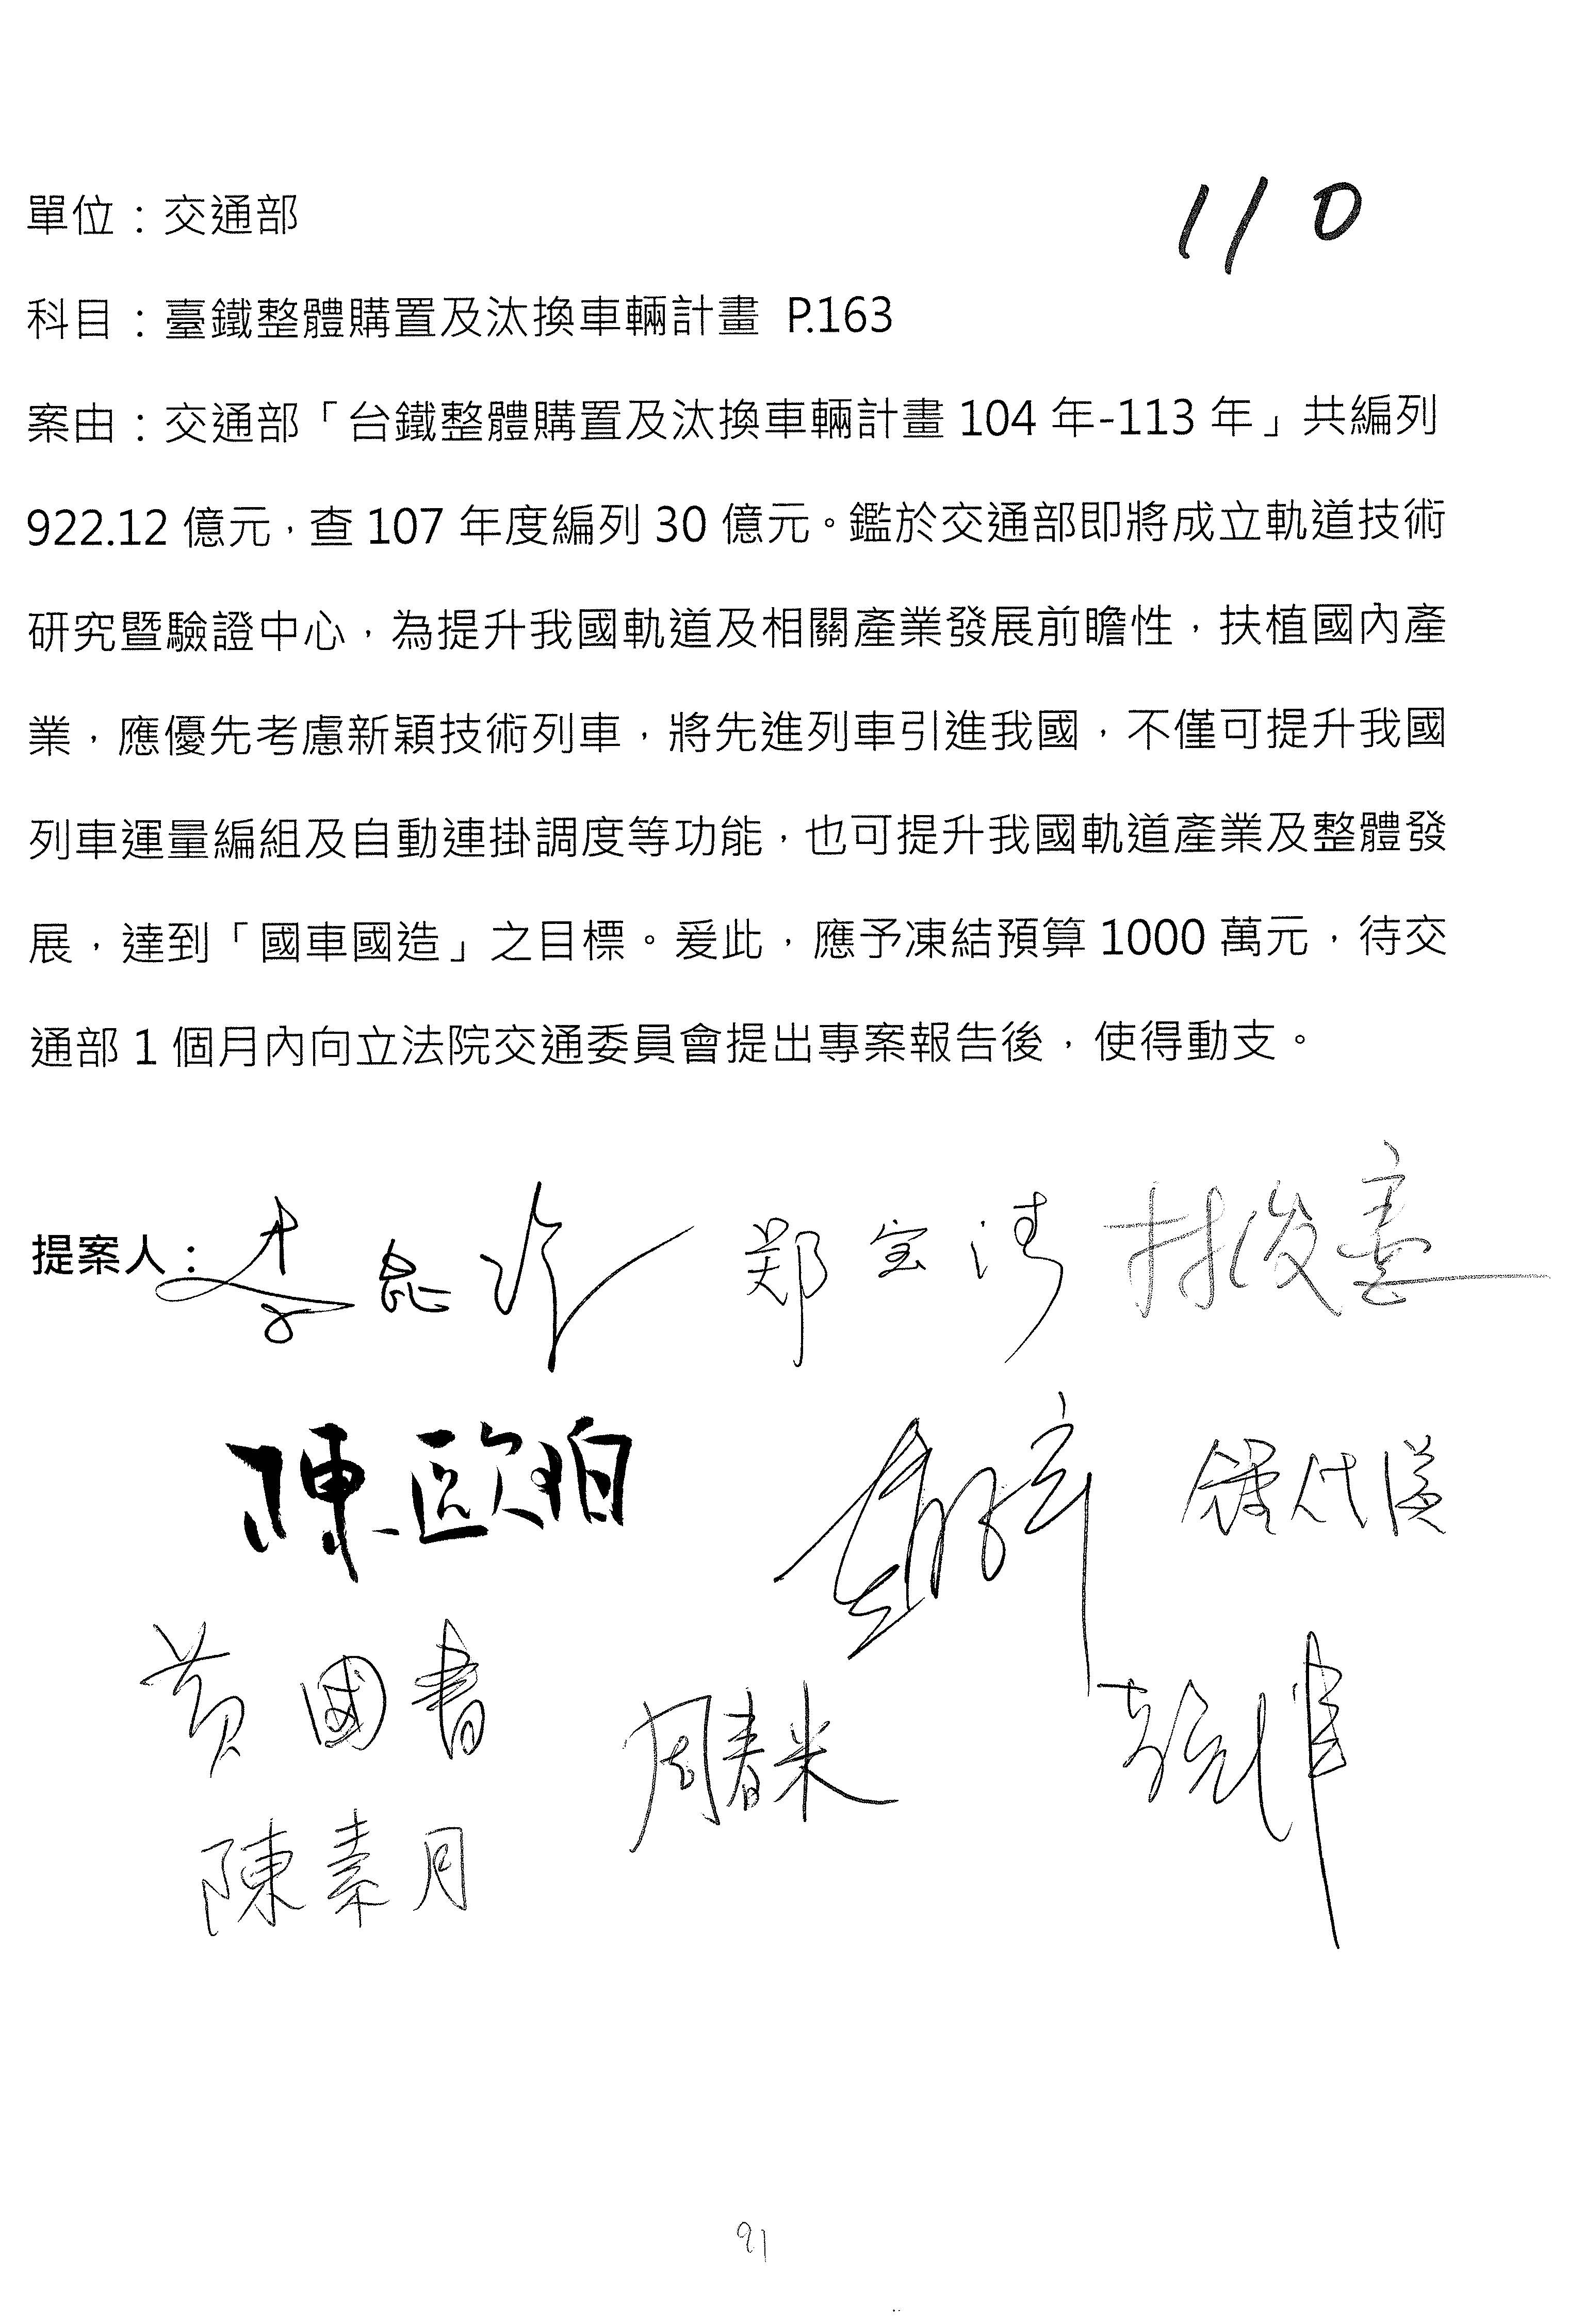 110
單位：交通部
科目：臺鐵整體購置及汰換車輛計畫 P.163
案由：交通部「台鐵整體購置及汰換車輛計畫 104 年-113 年」共編列
922.12 億元，查 107 年度編列 30 億元。鑑於交通部即將成立軌道技術
研究暨驗證中心，為提升我國軌道及相關產業發展前瞻性，扶植國內產
業，應優先考慮新穎技術列車，將先進列車引進我國，不僅可提升我國
列車運量編組及自動連掛調度等功能，也可提升我國軌道產業及整體發
展，達到「國車國造」之目標。爰此，應予凍結預算 1000 萬元，待交
通部 1 個月內向立法院交通委員會提出專案報告後，使得動支。
提案人： 李昆澤 郑宝清 林俊憲
陳歐珀
黃國書 周春米
陳素月
91